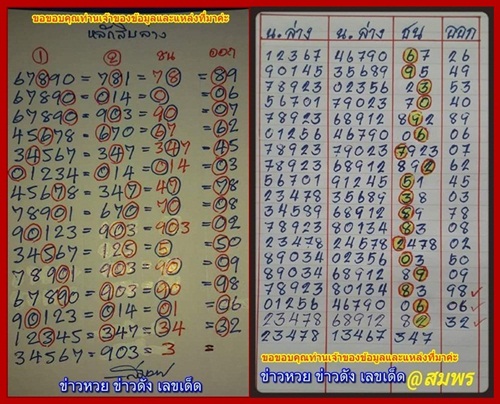 ขอขอบคุณท่านเจ้าของข้อมูลและแหล่งที่มาค่ะ
หลักสิบล่าง
1 2 ชน ออก
67890 = 781 = 78 = 89
67890 = 014 = 0 = 06
67890 = 903 = 90 = 07
45678 = 670 = 67 = 62
34567 = 347 = 347 = 45
01234 = 014 = 014 = 03
45678 = 347 = 47 = 78
78901 = 670 = 70 = 08
90123 = 903 = 903 = 02
34567 = 125 = 5 = 50
78901 = 903 = 90 = 09
67890 = 903 = 90 = 98
90123 = 014 = 01 = 06
12345 = 347 = 34 = 32
34567 = 903 = 3 =
ข่าวหวย ข่าวดัง เลขเด็ด
น.ล่าง น.ล่าง ชน ออก
12367 46790 67 26
90145 35689 95 49
78923 02356 23 53
56701 79023 70 40
78923 68912 892 89
01256 46790 06 06
78923 79023 7923 07
78923 68912 892 62
56701 91245 51 45
23478 35689 38 03
34589 68912 89 78
78923 80134 83 08
23478 24578 2478 02
89034 02356 03 50
89034 68912 89 09
78923 80134 83 98
01256 46790 06 06
23478 68912 82 32
23478 13467 347
ขอขอบคุณท่านเจ้าของข้อมูลและแหล่งที่มาค่ะ
ข่าวหวย ข่าวดัง เลขเด็ด @สมพร